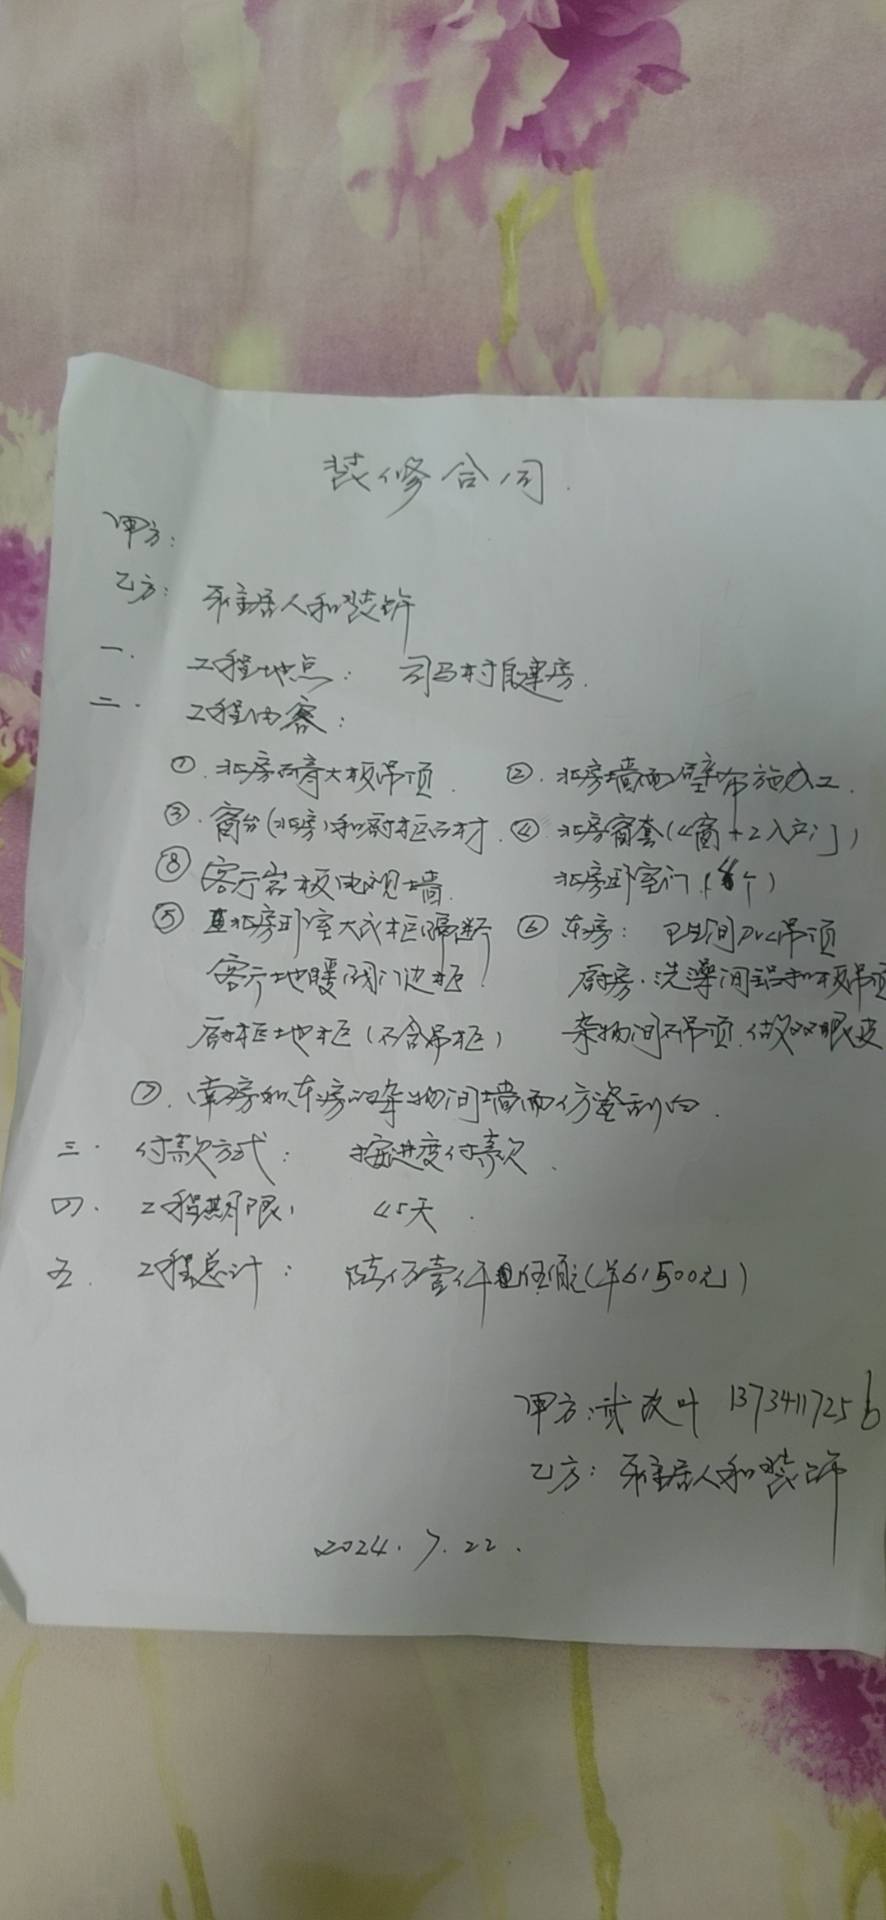 装修合同.
甲方:
乙方: 雅居人和装饰
一. 工程地点: 司马村自建房.
二. 工程内容:
①. 北房石膏大板吊顶. ②. 北房墙面壁布施工.
③. 窗台(北房)和厨柜石材. ④ 北房窗套(4窗+2入户门)
⑧ 客厅岩板电视墙. 北房卧室门.(个)
⑤ 北房卧室大衣柜隔断 ⑥ 东房: 卫生间PVC吊顶
客厅地暖阀门边柜. 厨房.洗澡间铝扣板吊顶
厨柜地柜(不含吊柜) 杂物间不吊顶.做双眼皮
⑦. 南房和东房的杂物间墙面仿瓷刮白.
三. 付款方式: 按进度付款.
四. 工程期限: 45天.
五. 工程总计: 陆万壹仟伍佰元(¥61500元)
甲方: 武改叶 13734117256
乙方: 雅居人和装饰
2024.7.22.